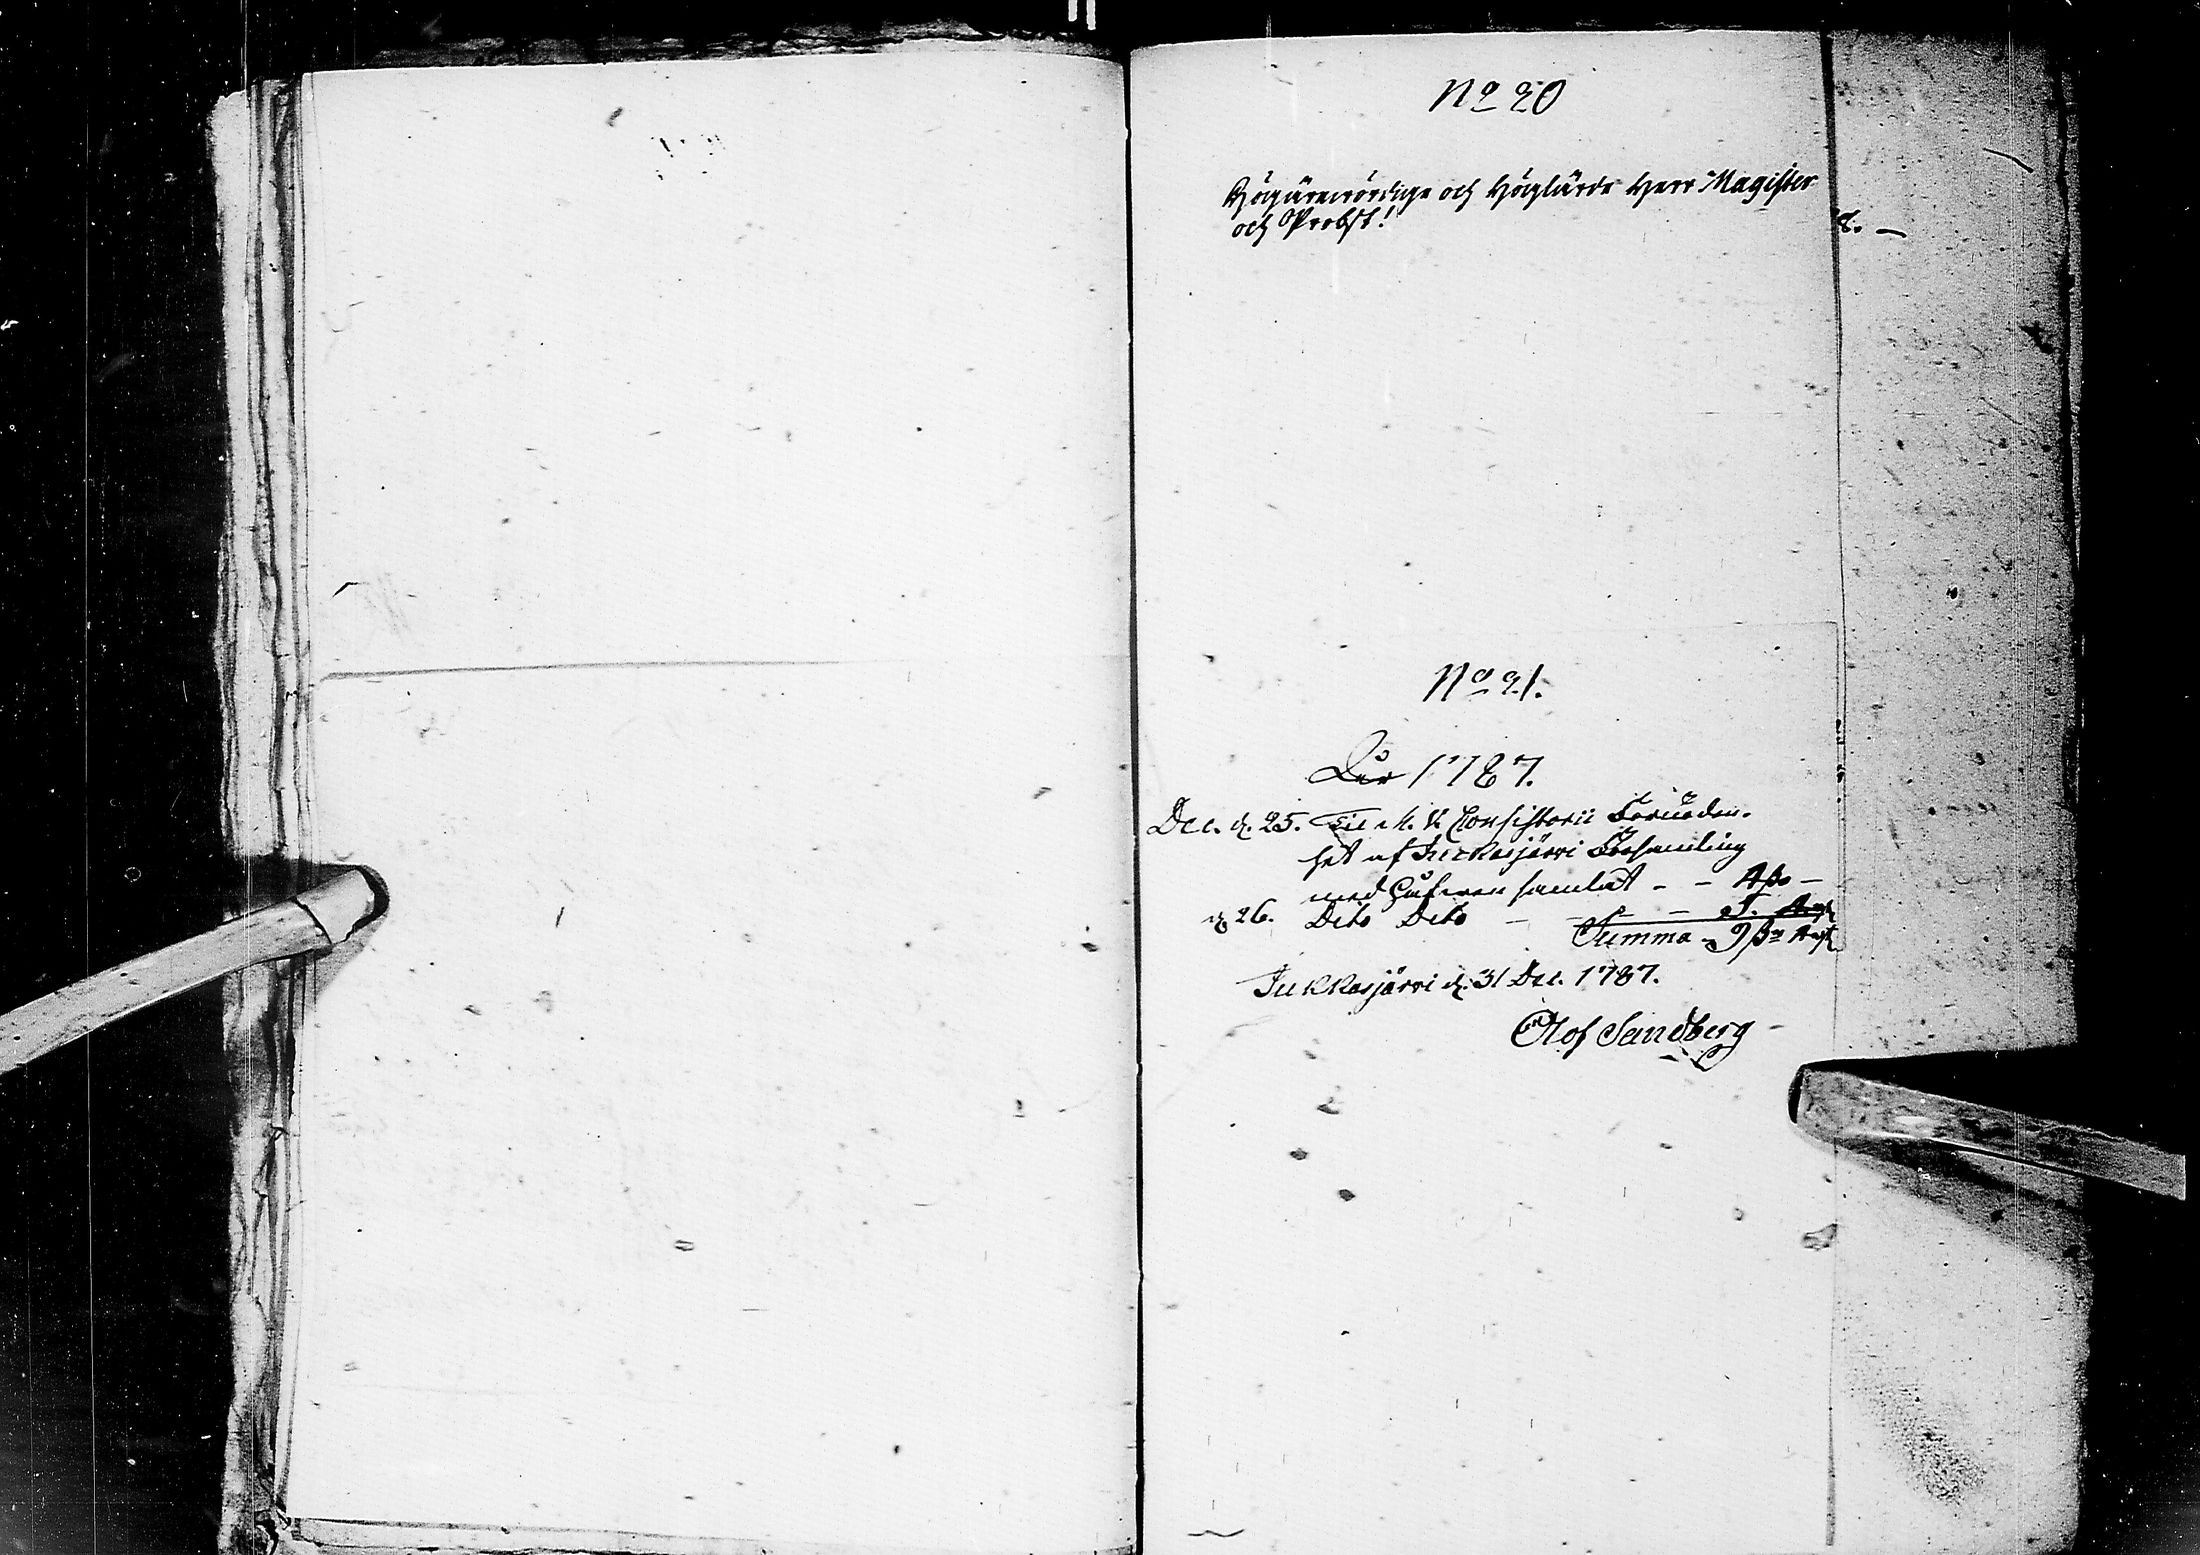 No 20
Högärewördige och Höglärde Herr Magister
och Probst!
8. —
No 21.
Åhr 1787.
Dec. d. 25. Til M. V. Consistorii Förnöden-
het af Juckasjärvi Församling
med Håfwen samlat - - 4 ß -
d. 26. Dito Dito - - - - 5.
Summa - 9 ß
Jukkasjärvi d. 31 Dec. 1787.
Olof Sandberg